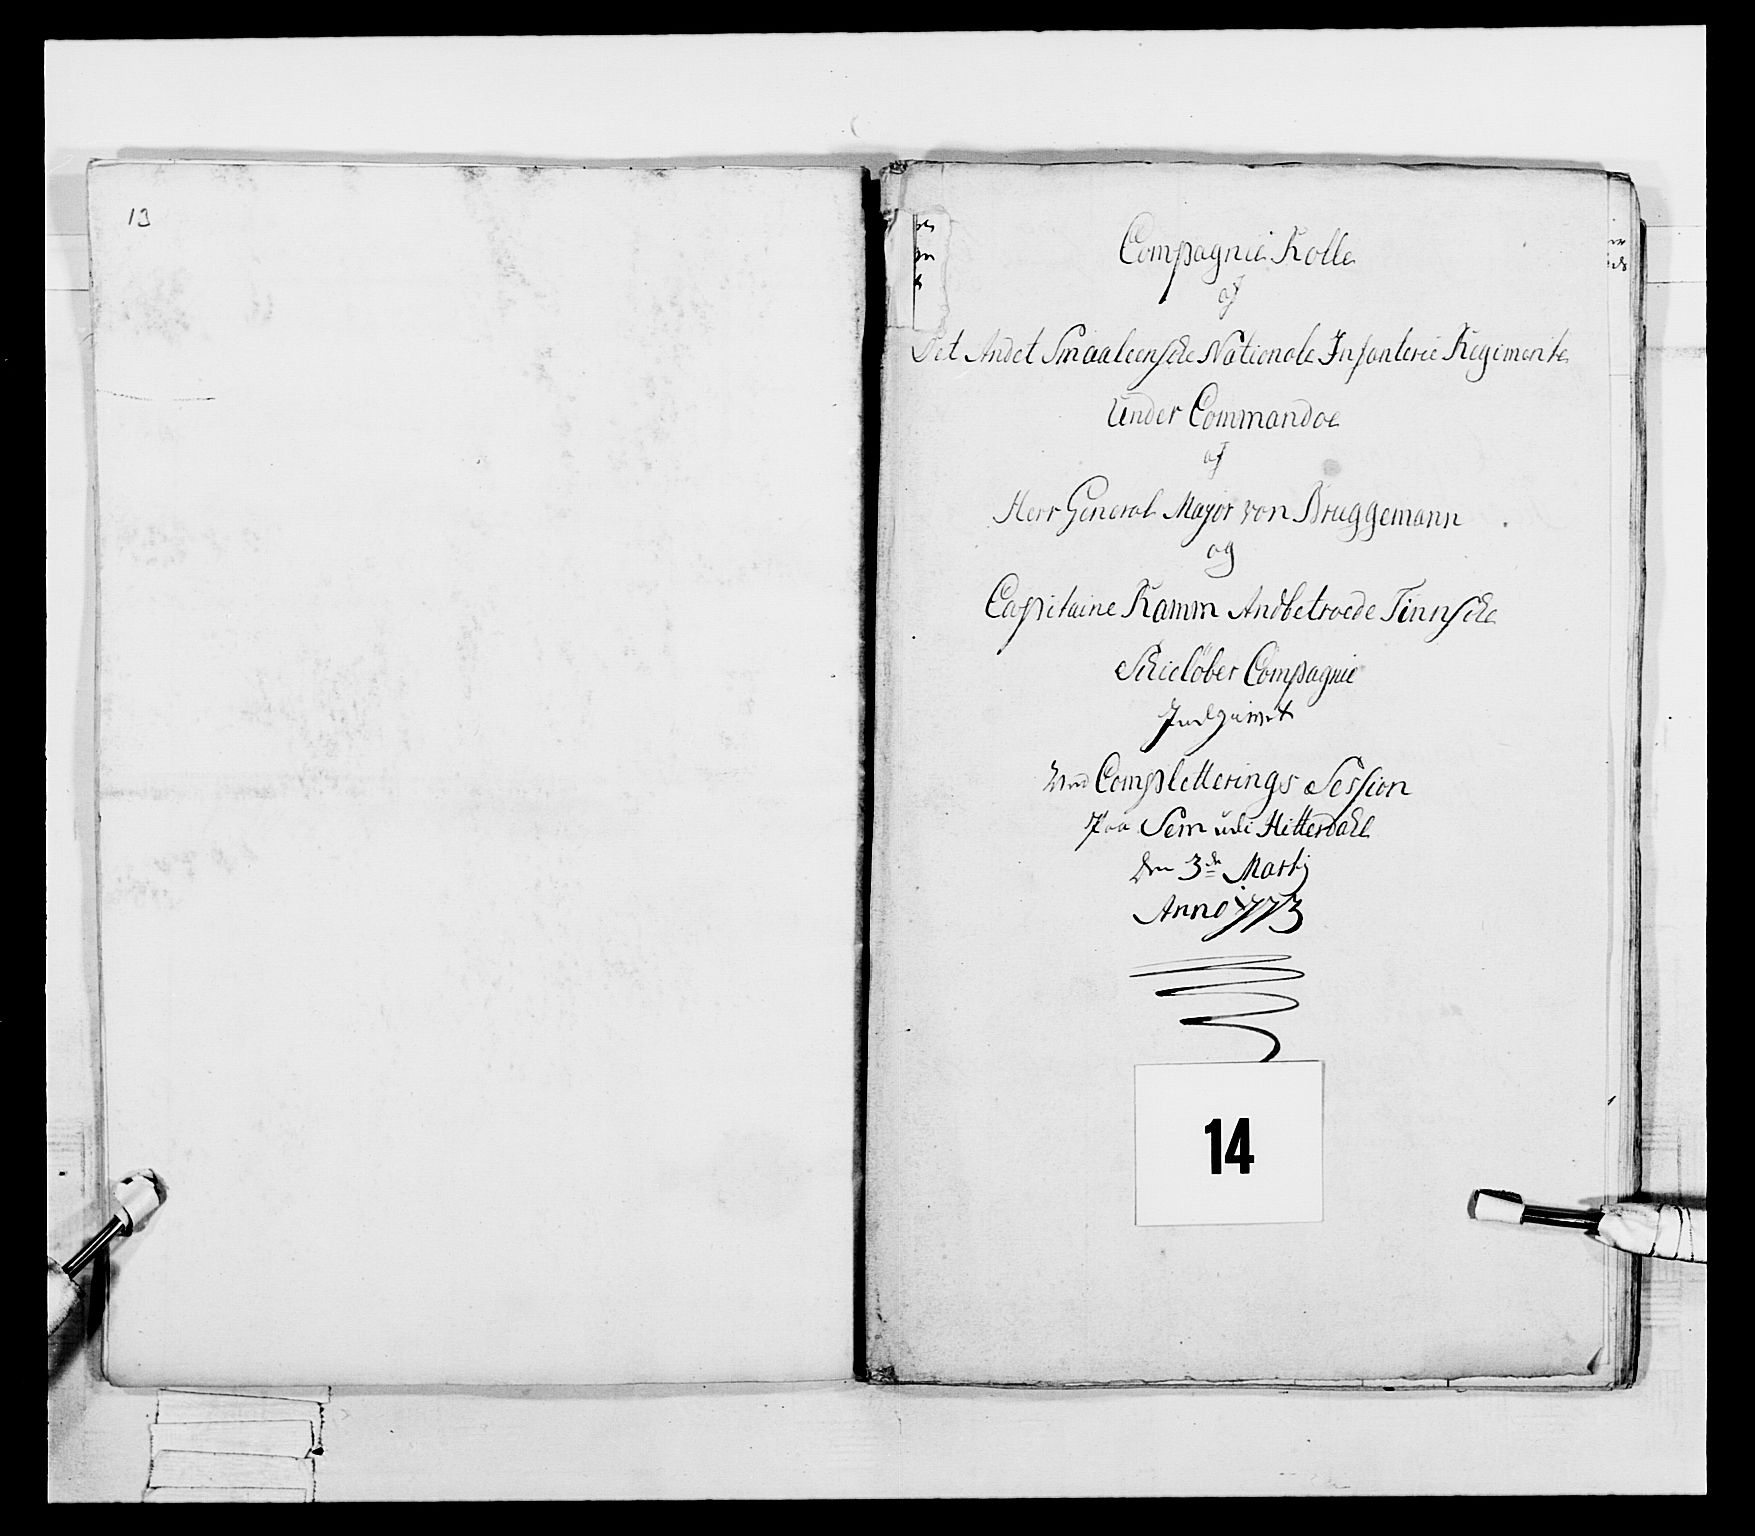 13
Compagnie Rolle
af
Det Andet Smaaleenske Nationale Infanterie Regimente
Under Commandoe
af
Herr General Mayor von Bruggemann
og
Capitaine Ramm Andbetroede Tinnske
Skieløber Compagnie
Indgivet
Ved Completterings Session
Paa Sem udi Hitterdahl
Den 3de Martij
Anno 1773
14